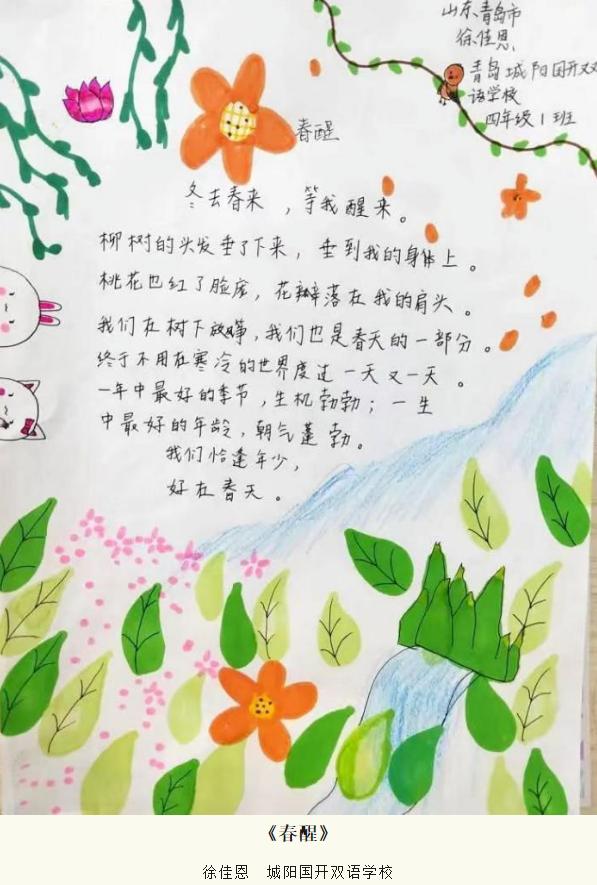 山东青岛市
徐佳恩
青岛城阳国开双
语学校
四年级1班
春醒
冬去春来，等我醒来。
柳树的头发垂了下来，垂到我的身体上。
桃花也红了脸庞，花瓣落在我的肩头。
我们在树下放筝，我们也是春天的一部分。
终于不用在寒冷的世界度过一天又一天。
一年中最好的季节，生机勃勃；一生
中最好的年龄，朝气蓬勃。
我们恰逢年少，
好在春天。
《春醒》
徐佳恩 城阳国开双语学校